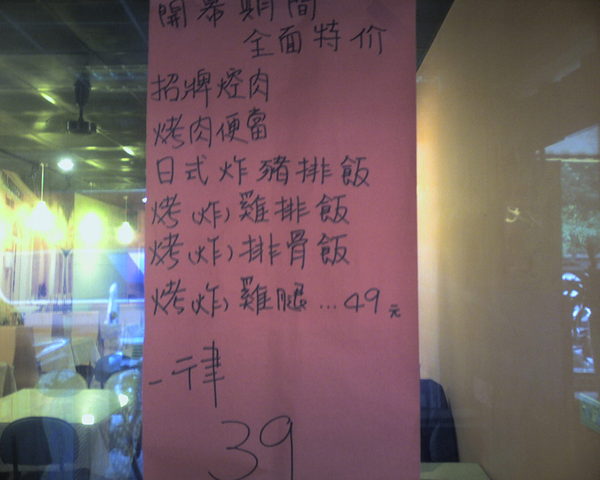 開幕期間
全面特价
招牌焢肉
烤肉便當
日式炸豬排飯
烤(炸)雞排飯
烤(炸)排骨飯
烤(炸)雞腿...49元
一律
39